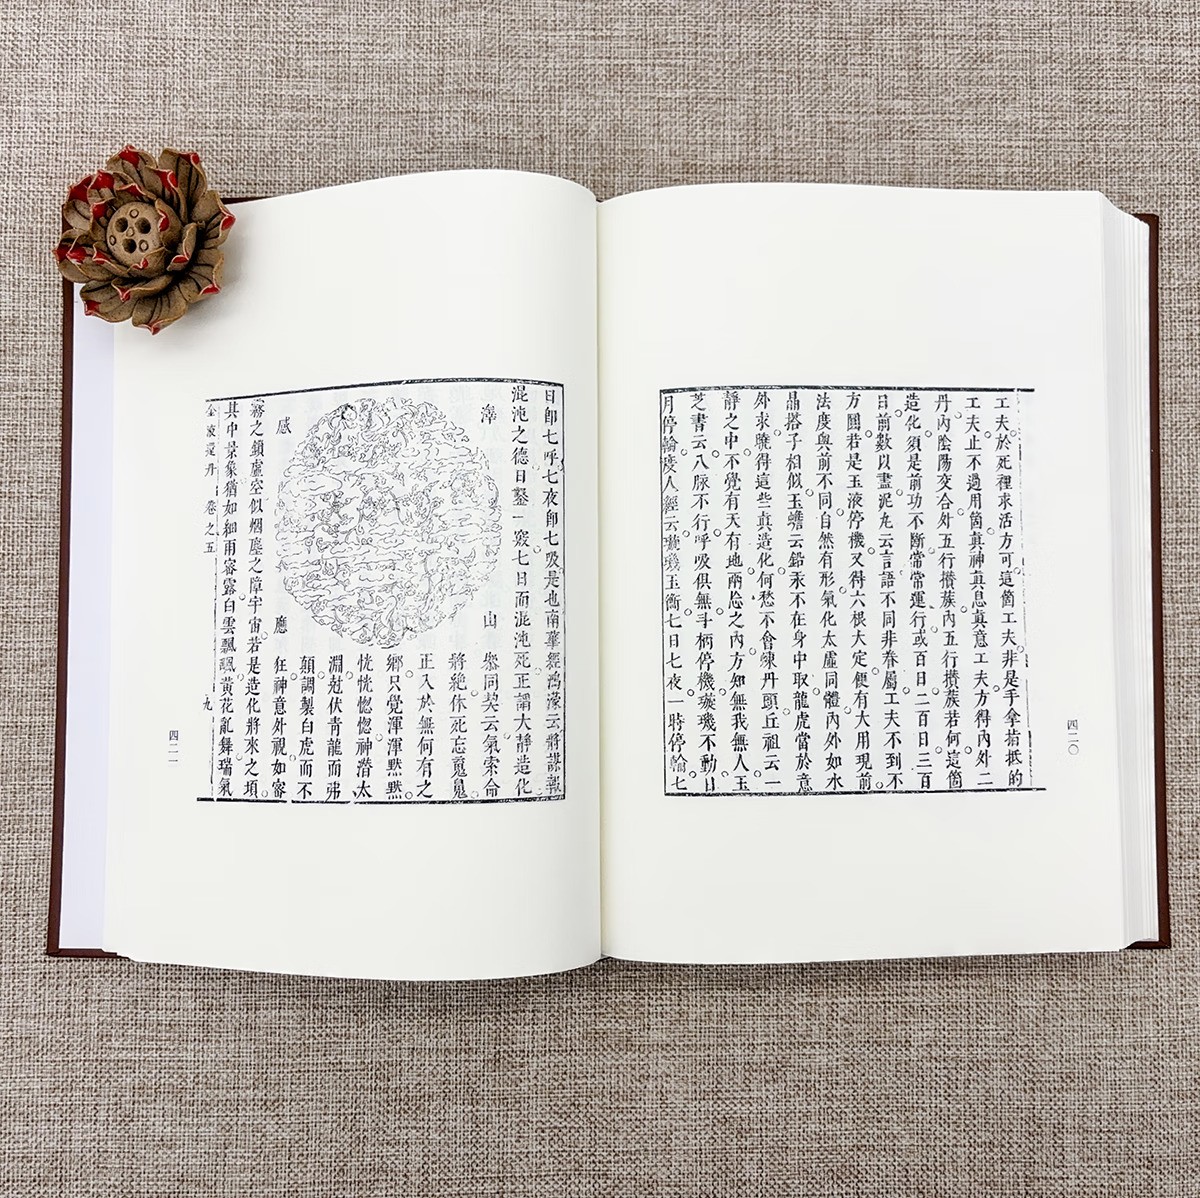 工夫於死裡求活方可這箇工夫非是手拿指抵的
工夫止不過用箇眞神眞息眞意工夫方得內外二
丹內陰陽交合外五行攢蔟內五行攢蔟若何這箇
造化須是前功不斷常常運行或百日二百日三百
日前數以盡泥丸云言語不同非眷屬工夫不到不
方圓若是玉液停機又得六根大定便有大用現前
法度與前不同自然有形氣化太虛同體內外如水
晶搭子相似玉蟾云鉛汞不在身中取龍虎當於意
外求曉得這些眞造化何愁不會煉丹頭丘祖云一
靜之中不覺有天有地兩忘之內方知無我無人玉
芝書云八脉不行呼吸俱無斗柄停機璇璣不動日
月停輪度人經云璇璣玉衡七日七夜一時停輪七
四二〇
日卽七呼七夜卽七吸是也南華經鴻濛云將謀報
混沌之德日鑿一竅七日而混沌死正謂大靜造化
澤
山
叅同契云氣索命
將絶休死忘䰟䰟
正入於無何有之
鄉只覺渾渾黙黙
恍恍惚惚神潛太
淵尅伏青龍而弗
顛調製白虎而不
狂神意外視如審
感
應
霧之鎖虛空似烟塵之障宇宙若是造化將來之項
其中景象猶如細雨審露白雲飄颻黃花亂舞瑞氣
卷之五
九
四二一